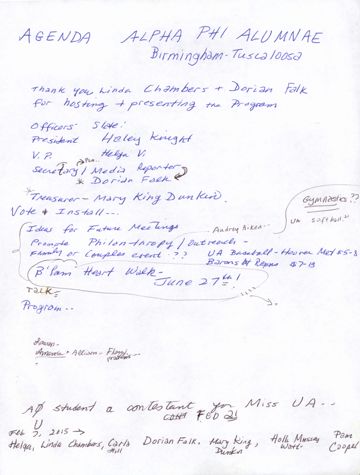 AGENDA ALPHA PHI ALUMNAE
Birmingham-Tuscaloosa
Thank you Linda Chambers + Dorian Falk
for hosting + presenting the Program
Officers Slate:
President Haley Knight
V.P. Helga V.
Secretary / Media Reporter
* Dorian Falk
*Treasurer - Mary King Dunkin.
Vote + Install...
Gymnastics??
UA softball
Audrey Aiken--
Ideas for Future Meetings
Promote Philanthropy / Outreach -
Family or Couples event - ?? UA Baseball - Hoover Met
Barons
B'ham Heart Walk -
June 27th!
Talk -
Program..
Amanda + Allison -
AΦ student a contestant for Miss UA --
FEB 21
Feb 7, 2015 →
Helga, Linda Chambers, Carla Hill Dorian Falk, Mary King Dunkin, Holli Watts. Pam Cooper